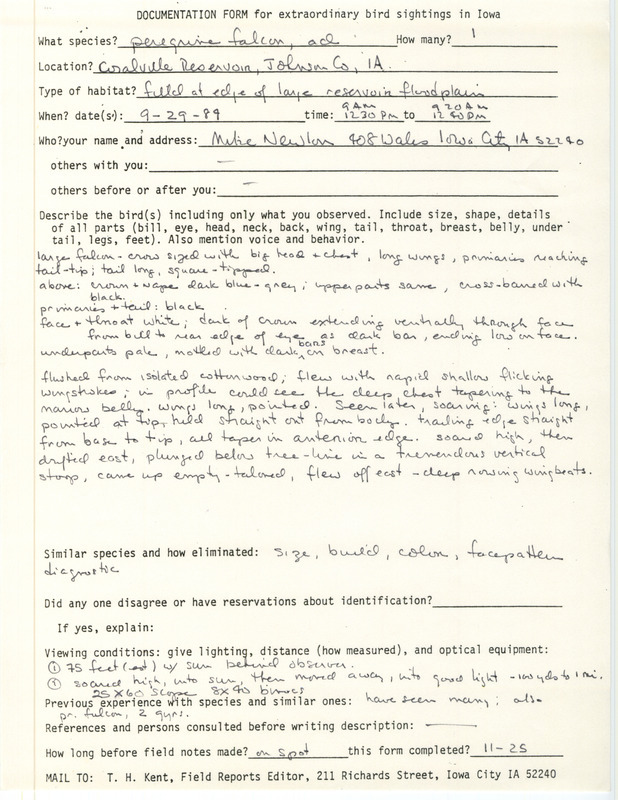 DOCUMENTATION FORM for extraordinary bird sightings in Iowa
What species? peregrine falcon, ad How many? 1
Location? Coralville Reservoir, Johnson Co, IA.
Type of habitat? field at edge of large reservoir floodplain
9 AM 9 20 AM
When? date(s): 9-29-89 time: 12 30 PM to 12 40 PM
Who? your name and address: Mike Newlon 408 Wales Iowa City IA 52240
others with you: —
others before or after you: —
Describe the bird(s) including only what you observed. Include size, shape, details
of all parts (bill, eye, head, neck, back, wing, tail, throat, breast, belly, under
tail, legs, feet). Also mention voice and behavior.
large falcon - crow sized with big head + chest, long wings, primaries reaching
tail-tip; tail long, square-tipped.
above: crown + nape dark blue-grey; upperparts same, cross-barred with
black.
primaries + tail: black
face + throat white; dark of crown extending ventrally through face
from bill to rear edge of eye as dark bar, ending low on face.
underparts pale, mottled with dark bars on breast.
flushed from isolated cottonwood; flew with rapid shallow flicking
wingstrokes; in profile could see the deep chest tapering to the
narrow belly. wings long, pointed. Seen later, soaring: wings long,
pointed at tip, held straight out from body. trailing edge straight
from base to tip, all taper in anterior edge. soared high, then
drifted east, plunged below tree-line in a tremendous vertical
stoop, came up empty-taloned, flew off east - deep rowing wingbeats.
Similar species and how eliminated: size, build, color, face pattern
diagnostic
Did any one disagree or have reservations about identification?
If yes, explain:
Viewing conditions: give lighting, distance (how measured), and optical equipment:
① 75 feet (est) w/ sun behind observer.
① soared high, into sun, then moved away, into good light - 100 yds to 1 mi.
25X60 scope 8X40 binocs
Previous experience with species and similar ones: have seen many; also
pr. falcon, 2 gyrs.
References and persons consulted before writing description: —
How long before field notes made? on spot this form completed? 11-25
MAIL TO: T. H. Kent, Field Reports Editor, 211 Richards Street, Iowa City IA 52240